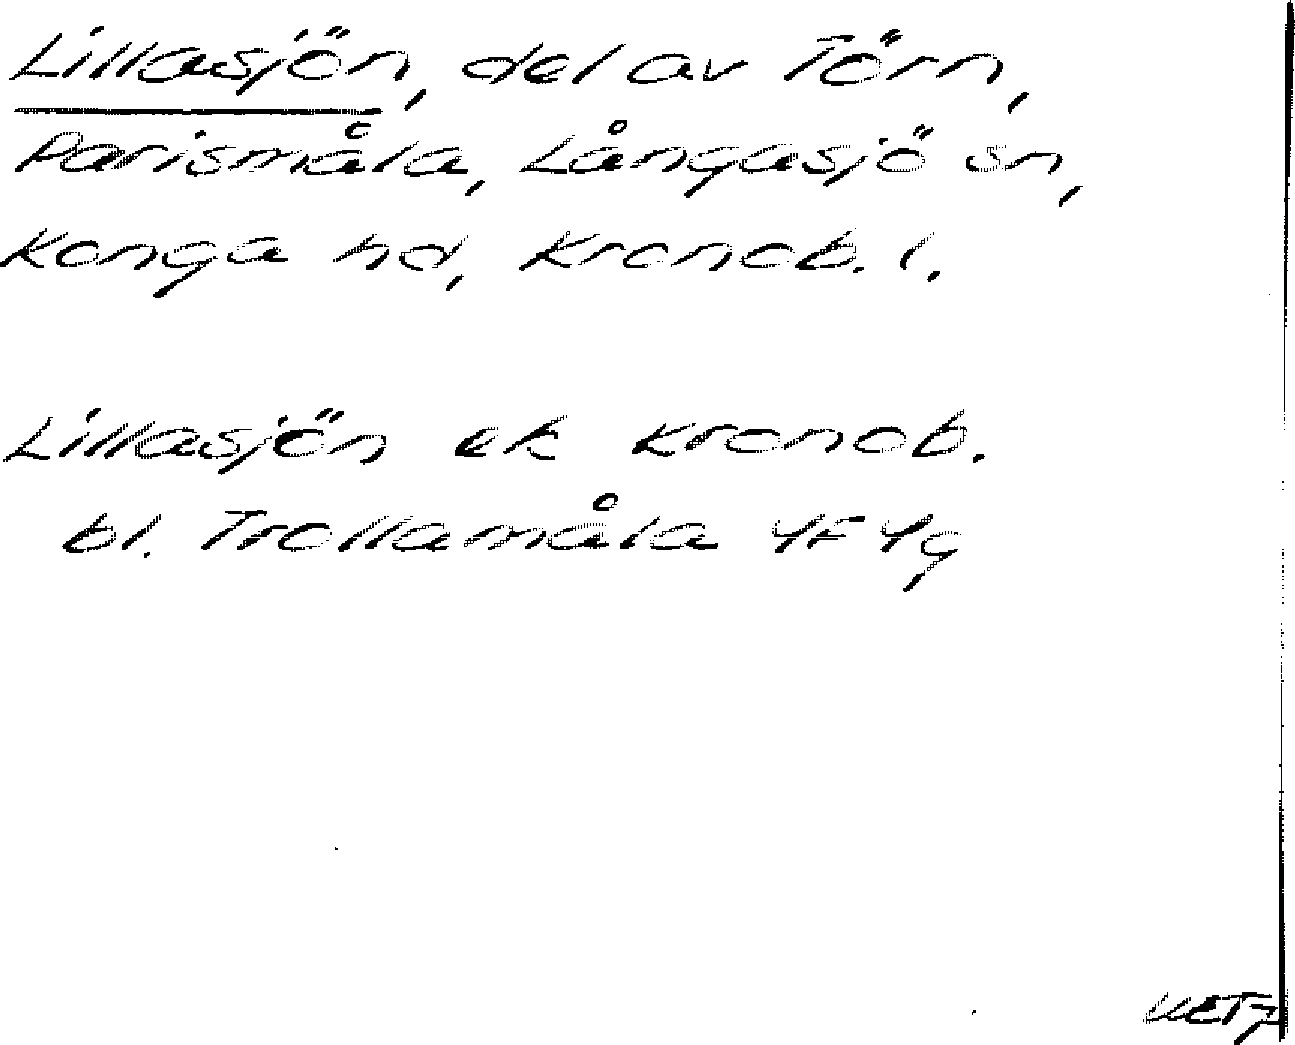 Lillasjön, del av Törn,
Parismåla, Långasjö sn,
Konga hd, Kronob. l.
Lillasjön ek Kronob.
bl. Trollamåla 4F4g